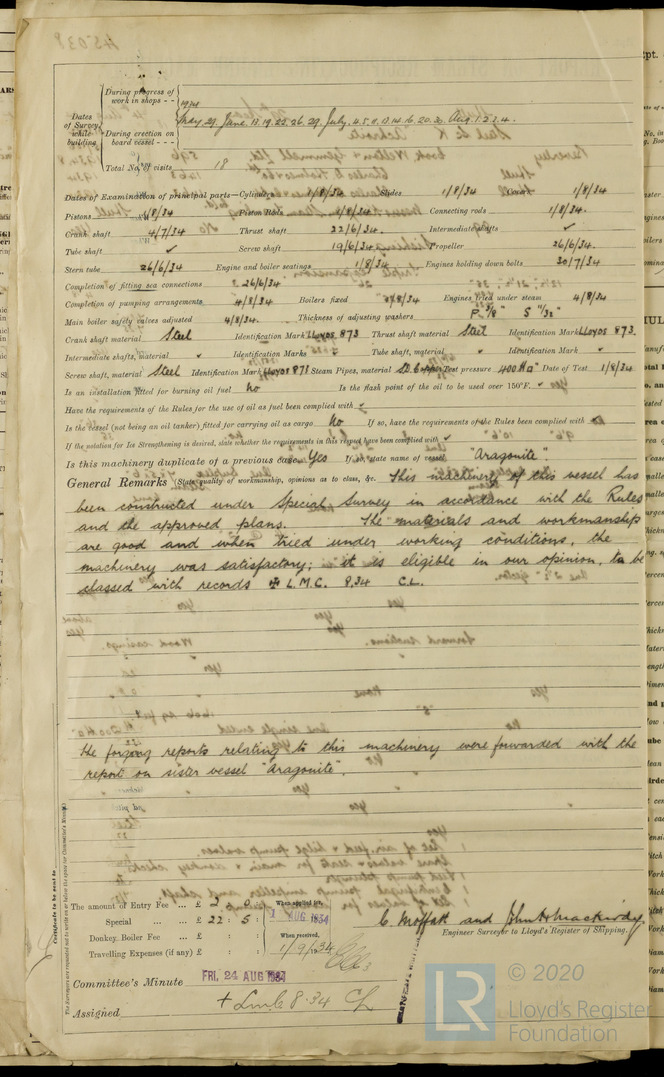 Dates of Survey while building
During progress of work in shops - - 1934 May, 29. June, 13. 19. 22. 26. 29. July, 4. 5. 9. 13. 14. 16. 20. 30. Aug. 1. 2. 3. 4.
During erection on board vessel - - -
Total No. of visits 18
Dates of Examination of principal parts—Cylinders 1/8/34 Slides 1/8/34 Covers 1/8/34
Pistons 1/8/34 Piston Rods 1/8/34 Connecting rods 1/8/34.
Crank shaft 4/7/34 Thrust shaft 22/6/34. Intermediate shafts ✓
Tube shaft ✓ Screw shaft 19/6/34 Propeller 26/6/34.
Stern tube 26/6/34 Engine and boiler seatings 1/8/34 Engines holding down bolts 30/7/34
Completion of fitting sea connections 26/6/34
Completion of pumping arrangements 4/8/34 Boilers fixed Engines tried under steam 4/8/34
Main boiler safety valves adjusted 4/8/34. Thickness of adjusting washers P 3/8" S 11/32"
Crank shaft material Steel Identification Mark LLOYDS 873 Thrust shaft material Steel Identification Mark LLOYDS 873.
Intermediate shafts, material ✓ Identification Marks Tube shaft, material ✓ Identification Mark ✓
Screw shaft, material Steel Identification Mark LLOYDS 871 Steam Pipes, material S.D. Copper Test pressure 400 Date of Test 1/8/34
Is an installation fitted for burning oil fuel No Is the flash point of the oil to be used over 150°F. ✓
Have the requirements of the Rules for the use of oil as fuel been complied with ✓
Is the vessel (not being an oil tanker) fitted for carrying oil as cargo No If so, have the requirements of the Rules been complied with
If the notation for Ice Strengthening is desired, state whether the requirements in this respect have been complied with ✓
Is this machinery duplicate of a previous case Yes If so, state name of vessel "Aragonite".
General Remarks (State quality of workmanship, opinions as to class, &c. This machinery of this vessel has
been constructed under Special Survey in accordance with the Rules
and the approved plans. The materials and workmanship
are good and when tried under working conditions, the
machinery was satisfactory; it is eligible in our opinion, to be
classed with records ✠ L.M.C. 8.34 C.L.
The forging reports relating to this machinery were forwarded with the
report on sister vessel "Aragonite".
Certificate to be sent to
The amount of Entry Fee ... £ 2 : 0 : When applied for,
Special ... ... £ 22 : 5 : AUG 1934
Donkey Boiler Fee ... £ : : When received,
Travelling Expenses (if any) £ : : 1/9/34
C. Moffatt and John H. Mackirdy
Engineer Surveyor to Lloyd's Register of Shipping.
Committee's Minute FRI. 24 AUG 1934
Assigned + Lmc 8.34 CL
© 2020
LR
Lloyd's Register
Foundation